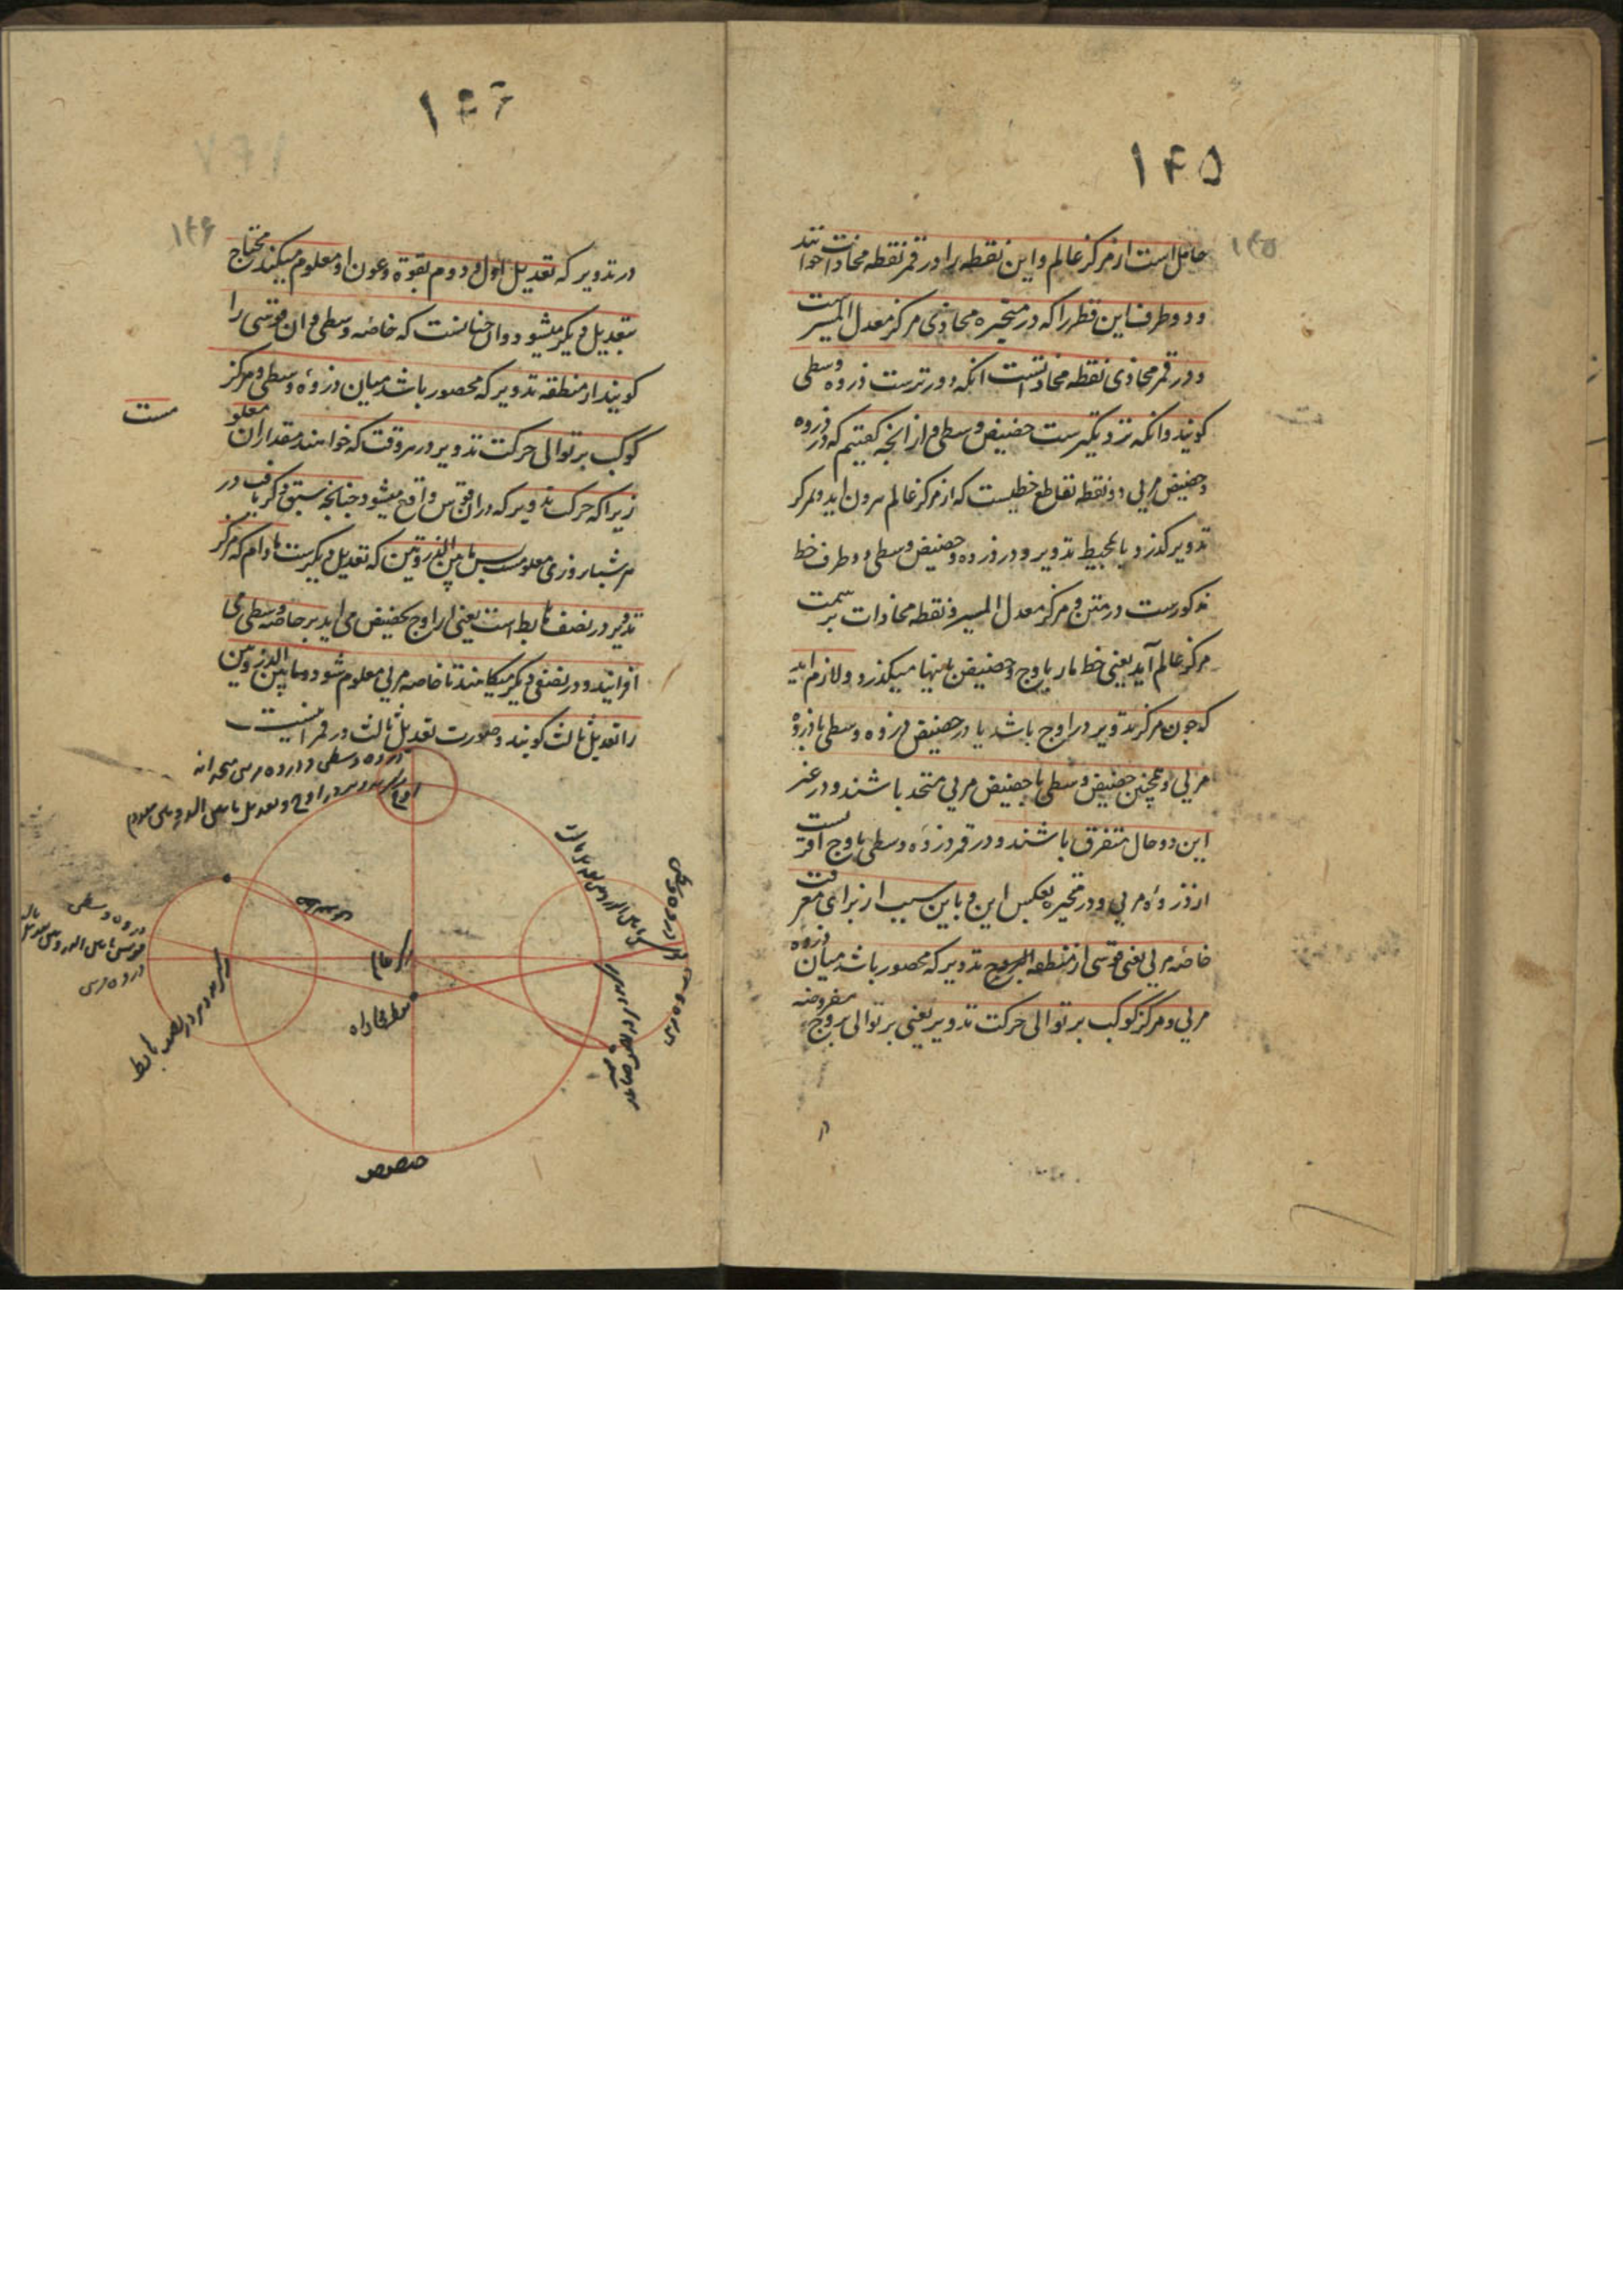 ۱۴۵
۱۴۵
حامل است از مرکز عالم و این نقطه را در قمر نقطه محاذات خوانند
و دو طرف این قطر را که در متحیره محاذی مرکز معدل المسیرست
و در قمر محاذی نقطه محاذاتست انکه دورترست ذروه وسطی
کویند و انکه نزدیکترست حضیض وسطی و از انجه کفتیم که ذروه
و حضیض مرئی دو نقطه تقاطع خطیست که از مرکز عالم بیرون اید و بمرکز
تدویر کذرد با محیط تدویر و ذروه و حضیض وسطی دو طرف خط
مذکورست در متن و مرکز معدل المسیر و نقطه محاذات بر سمت
مرکز عالم آید یعنی خط مار باوج و حضیض باینها میکذرد و لازم اید
که چون مرکز تدویر در اوج باشد یا در حضیض ذروه وسطی با ذروهٔ
مرئی و همچنین حضیض وسطی با حضیض مرئی متحد باشند و در غیر
این دو حال متفرق باشند و در قمر ذروه وسطی باوج اقربست
از ذروهٔ مرئی و در متحیره بعکس این و باین سبب از برای معرفت
خاصه مرئی یعنی قوسی از منطقه تدویر که محصور باشد میان ذروه
مرئی و مرکز کوکب بر توالی حرکت تدویر یعنی بر توالی بروج مفروضه
در
۱۴۶
۱۴۶
در تدویر که تعدیل اول و دوم بقوة و عون او معلوم میکنند محتاج
بتعدیل دیکر میشود و ان چنانست که خاصه وسطی و ان قوسی را
کویند از منطقه تدویر که محصور باشد میان ذروهٔ وسطی و مرکز
کوکب بر توالی حرکت تدویر در هر وقت که خواهند مقدار ان معلو
مست
زیرا که حرکت تدویر که در ان قوس واقع میشود چنانچه سبق ذکر یافت در
هر شبانروزی معلومست پس ما بین الذروتین که تعدیل دیکرست مادام که مرکز
تدویر در نصف هابط است یعنی از اوج بحضیض می اید بر خاصه وسطی می
افزایند و در نصفی دیکر میکاهند تا خاصه مرئی معلوم شود و ما بین الذروتین
را تعدیل ثالث کویند و صورت تعدیل ثالث در قمر اینست
ذروه وسطی و ذروه مرئی
مرکز تدویر در اوج و تعدیل ما بین الذروتین معدوم
اوج
ذروه وسطی
قوس ما بین الذروتین
ذروه مرئی
مرکز تدویر در نصف هابط
مرکز عالم
نقطه محاذاه
ذروه مرئی
ذروه وسطی
مرکز تدویر در نصف صاعد
حضیض